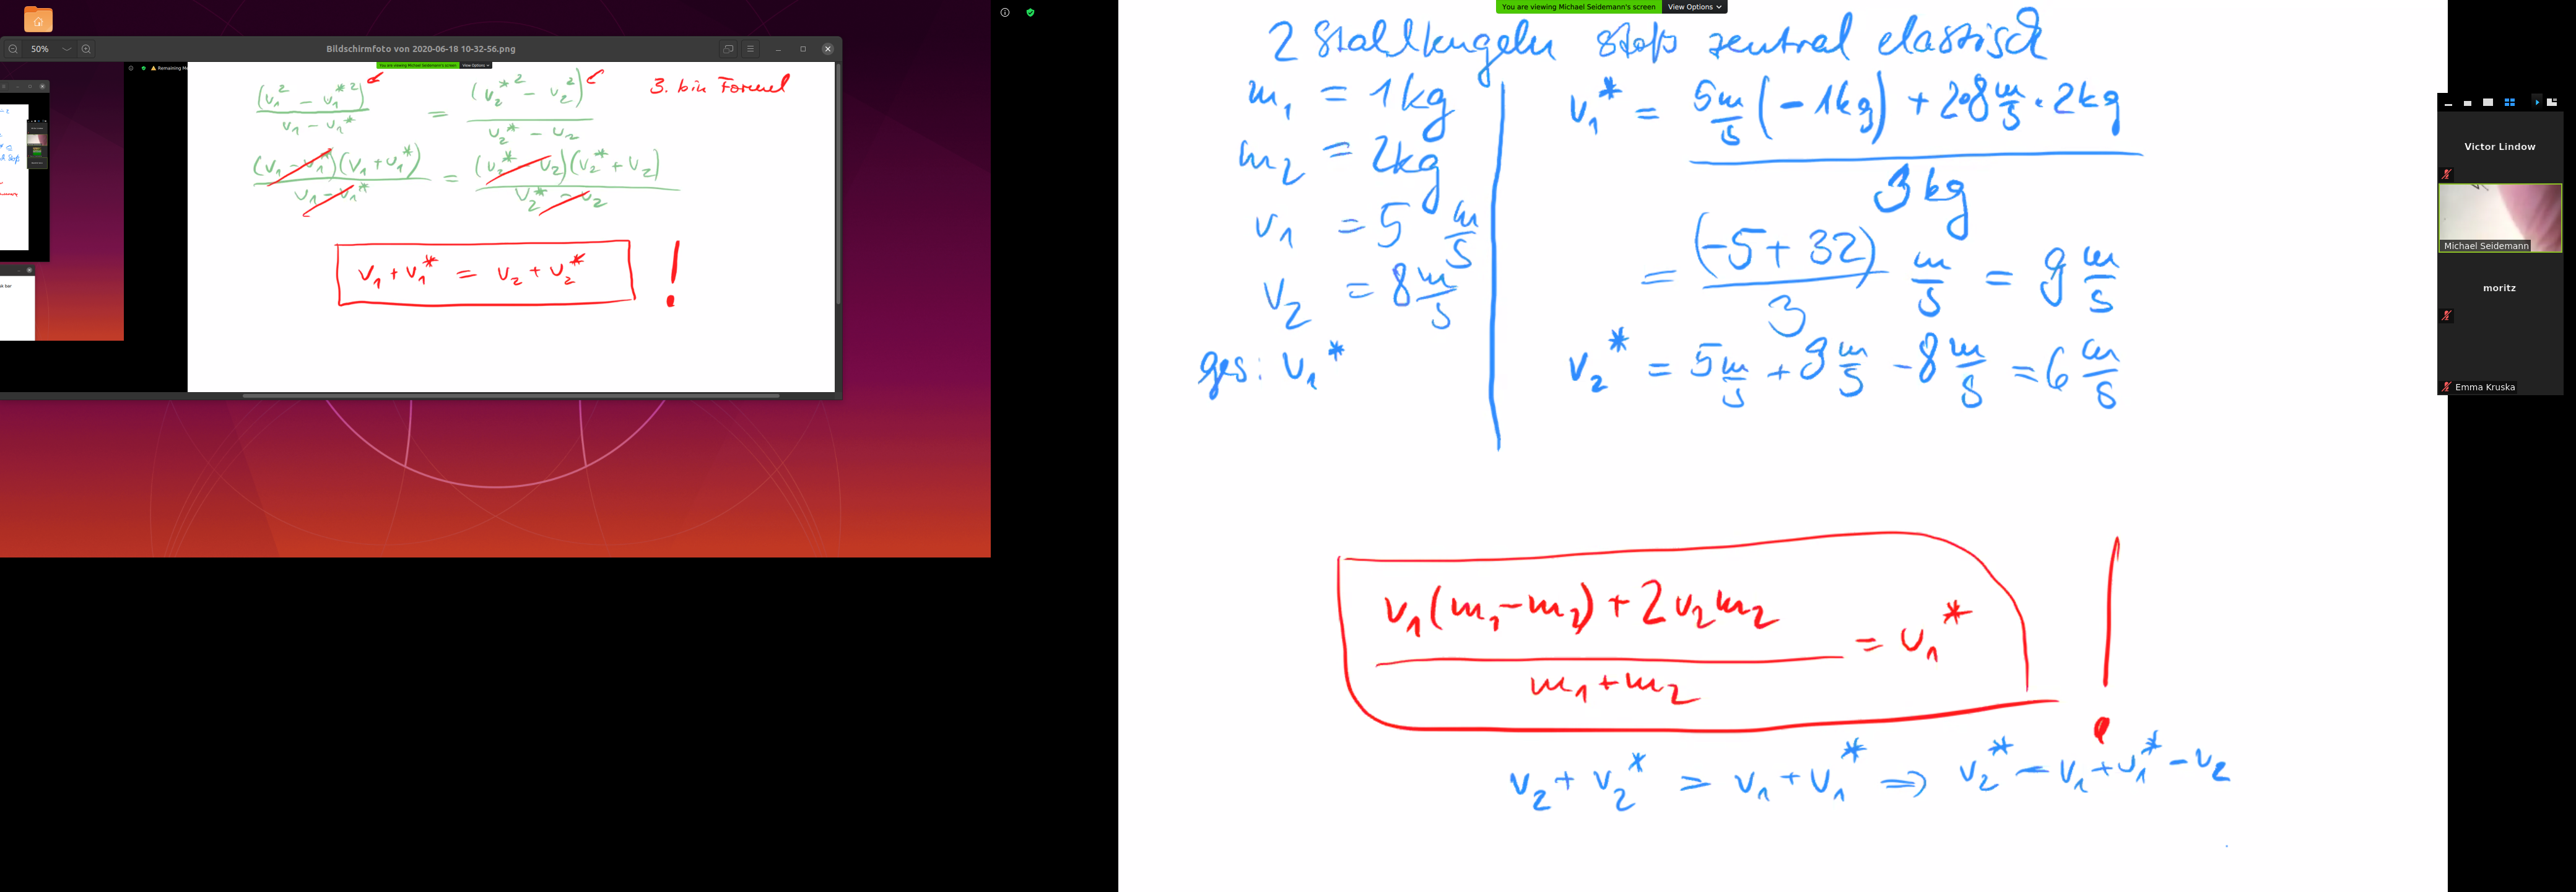 50%
Bildschirmfoto von 2020-06-18 10-32-56.png
You are viewing Michael Seidemann's screen View Options
Remaining Me
(v₁² - v₁*²) / (v₁ - v₁*) = (v₂*² - v₂²) / (v₂* - v₂)
3. bin Formel
(v₁ - v₁*)(v₁ + v₁*) / (v₁ - v₁*) = (v₂* - v₂)(v₂* + v₂) / (v₂* - v₂)
v₁ + v₁* = v₂ + v₂* !
You are viewing Michael Seidemann's screen View Options
2 Stahlkugeln stoß zentral elastisch
m₁ = 1kg
m₂ = 2kg
v₁ = 5 m/s
v₂ = 8 m/s
ges: v₁*
v₁* = (5 m/s (-1kg) + 2·8 m/s · 2kg) / 3kg
= (-5 + 32) / 3 m/s = 9 m/s
v₂* = 5 m/s + 9 m/s - 8 m/s = 6 m/s
(v₁(m₁ - m₂) + 2v₂m₂) / (m₁ + m₂) = v₁* !
v₂ + v₂* = v₁ + v₁* ⇒ v₂* = v₁ + v₁* - v₂
Victor Lindow
Michael Seidemann
moritz
Emma Kruska